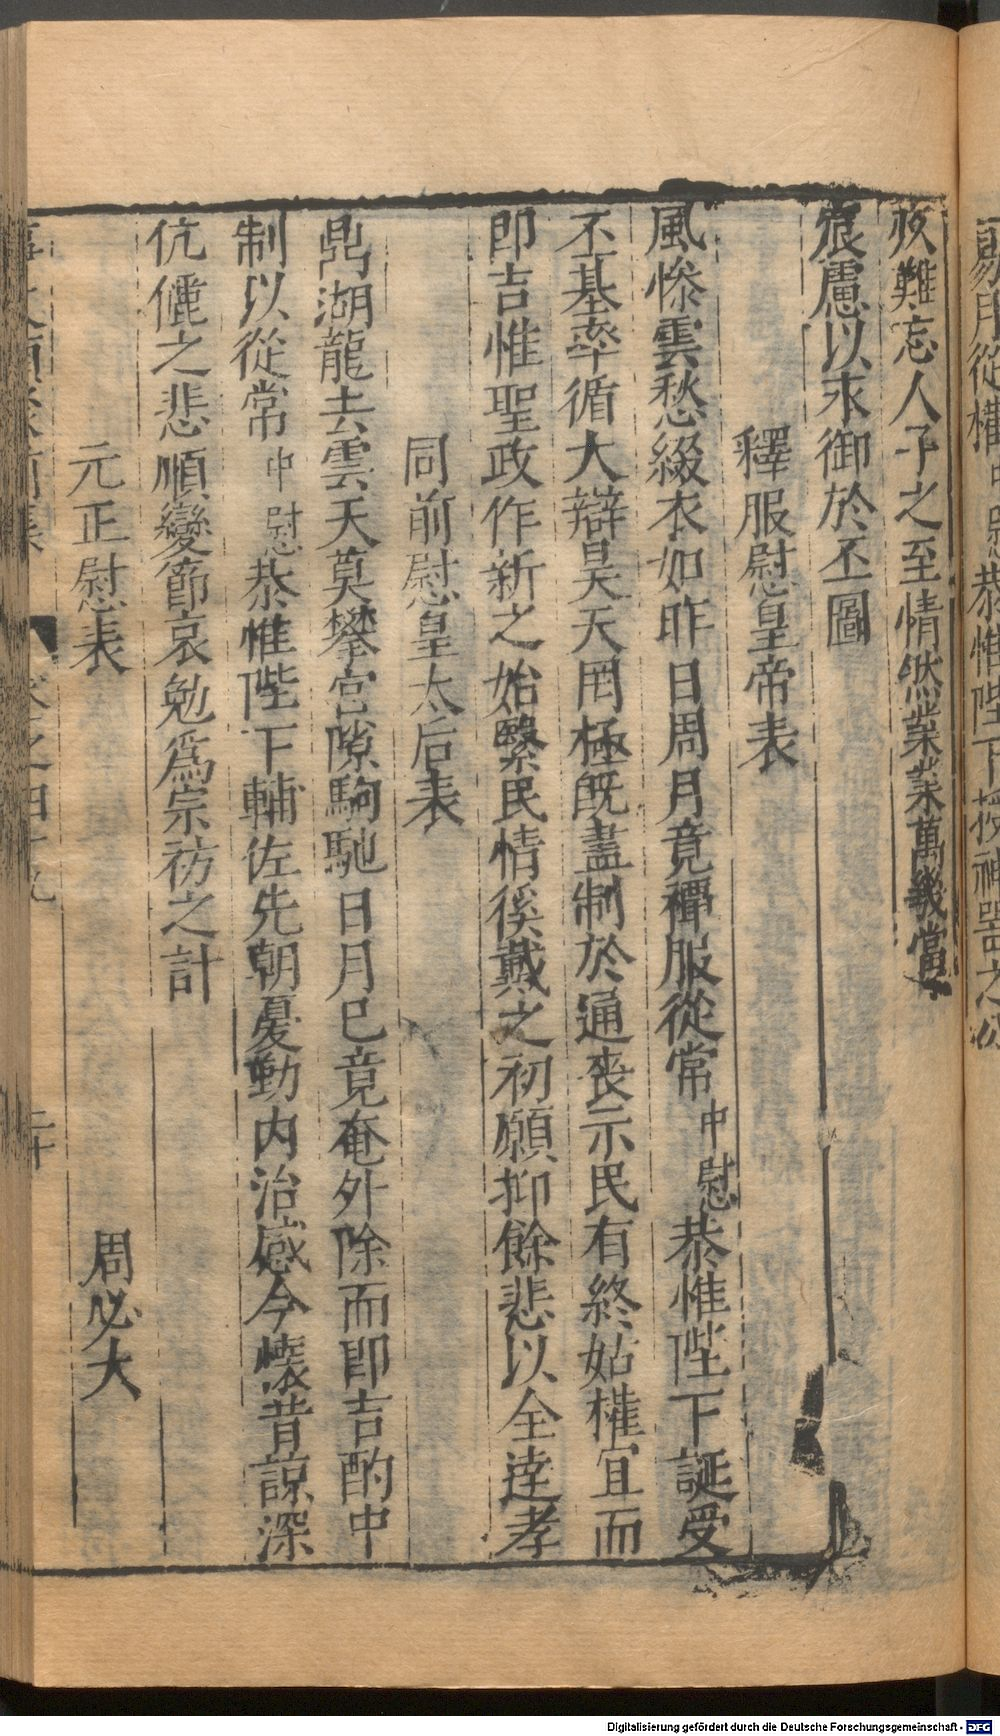 疚難忘人子之至情然業業萬幾當
宸慮以永御於丕圖
釋服慰皇帝表
風慘雲愁綴衣如昨日周月竟禫服從常中慰恭惟陛下誕受
丕基率循大辯昊天罔極旣盡制於通喪示民有終姑權宜而
即吉惟聖政作新之始繄民情徯戴之初願抑餘悲以全達孝
同前慰皇太后表
鼎湖龍去雲天莫攀宮隙駒馳日月已竟奄外除而即吉酌中
制以從常中慰恭惟陛下輔佐先朝憂勤內治感今懷昔諒深
伉儷之悲順變節哀勉爲宗祊之計
元正慰表 周必大
恭惟陛下
Digitalisierung gefördert durch die Deutsche Forschungsgemeinschaft - DFG